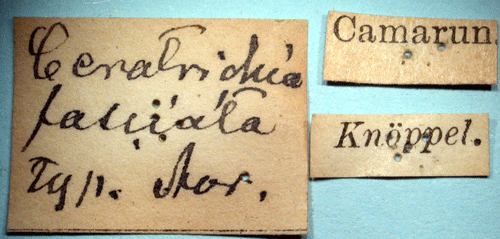 Ceratrichia
fasciata
Typ. Aor.
Camarun.
Knöppel.